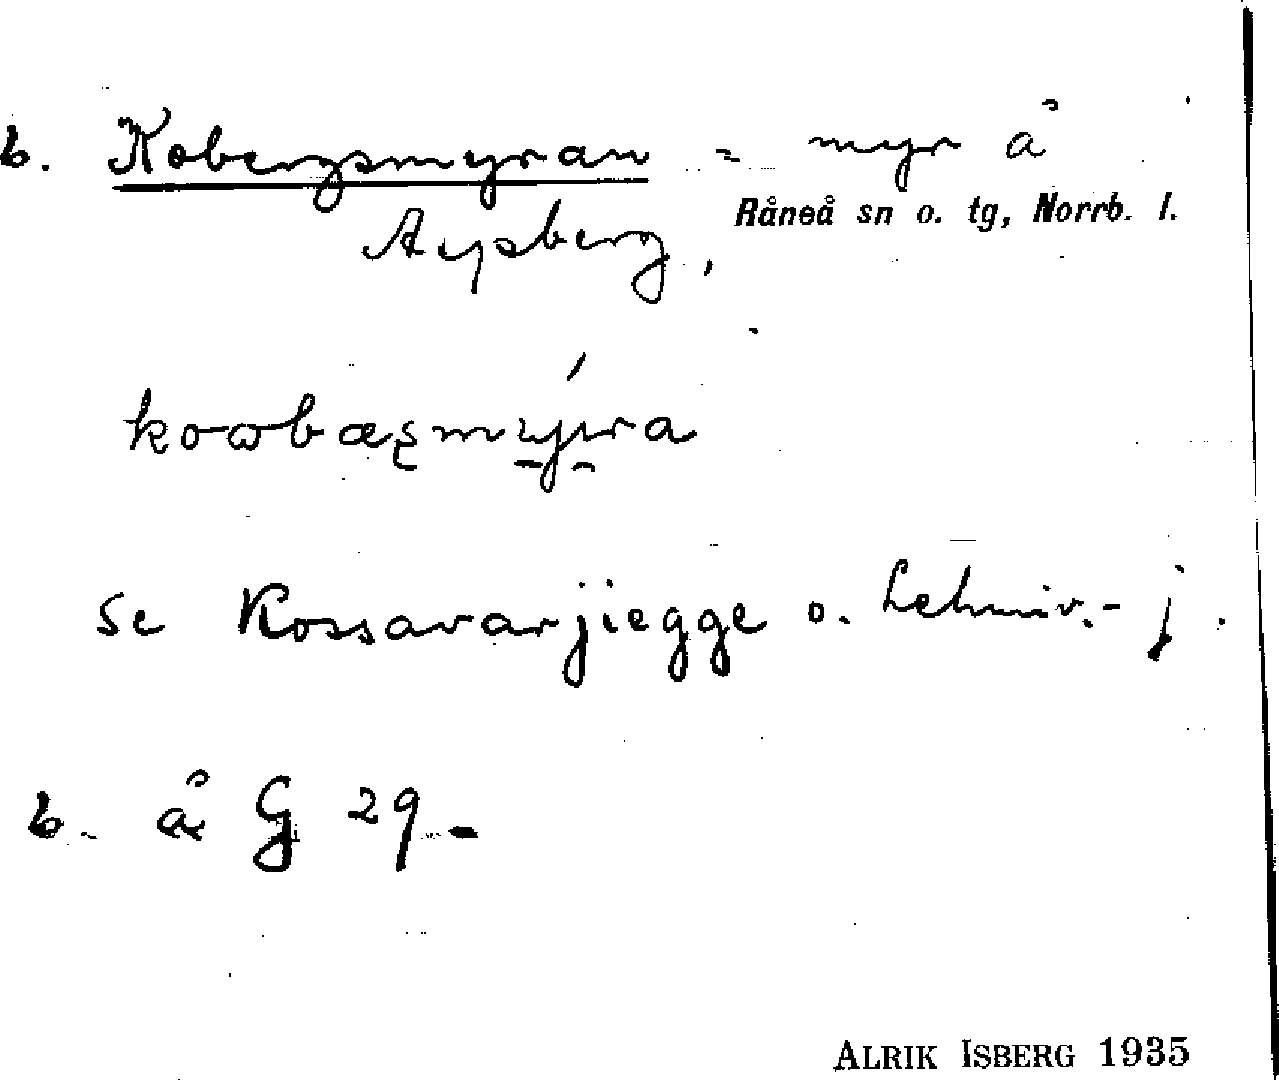 b. Kobergsmyran = myr å
Aypberg, Råneå sn o. tg, Norrb. l.
se Kossavarjiegge o. Lehmiv.- j.
b. å G 29 -
ALRIK ISBERG 1935